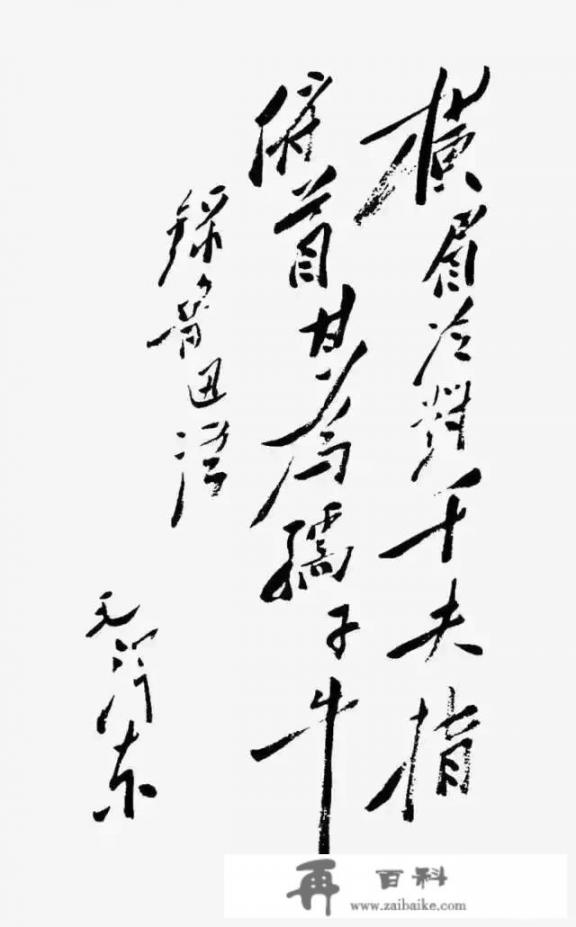 橫眉冷對千夫指
俯首甘為孺子牛
錄魯迅語
毛澤東
再百科
www.zaibaike.com